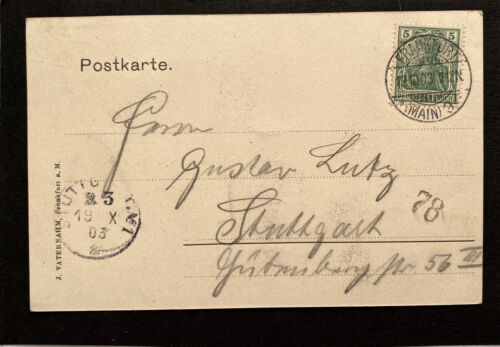 Postkarte.
5 5
FRANKFURT
(MAIN)
Herrn
Gustav Lutz
Stuttgart
Gutenbergstr 56 III
78
STUTTG
19 X
03
J. VATERNAHM, Frankfurt a. M.